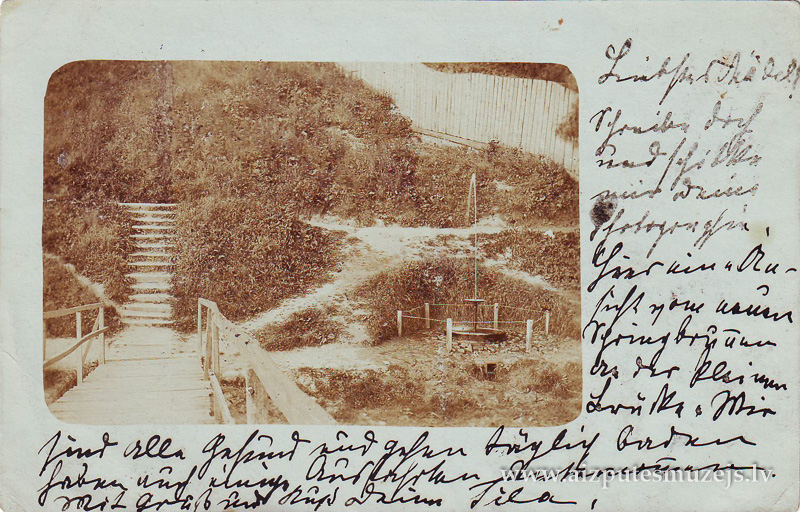 Liebstes Mädel!
Schreibe doch
und schicke
mir Deine
Photographie.
Hier eine An-
sicht vom neuen
Springbrunnen
an der kleinen
Brücke. Wir
sind alle gesund und gehen täglich baden
haben auch einige Ausfahrten
Mit Gruß und Kuß Deine
www.aizputesmuzejs.lv